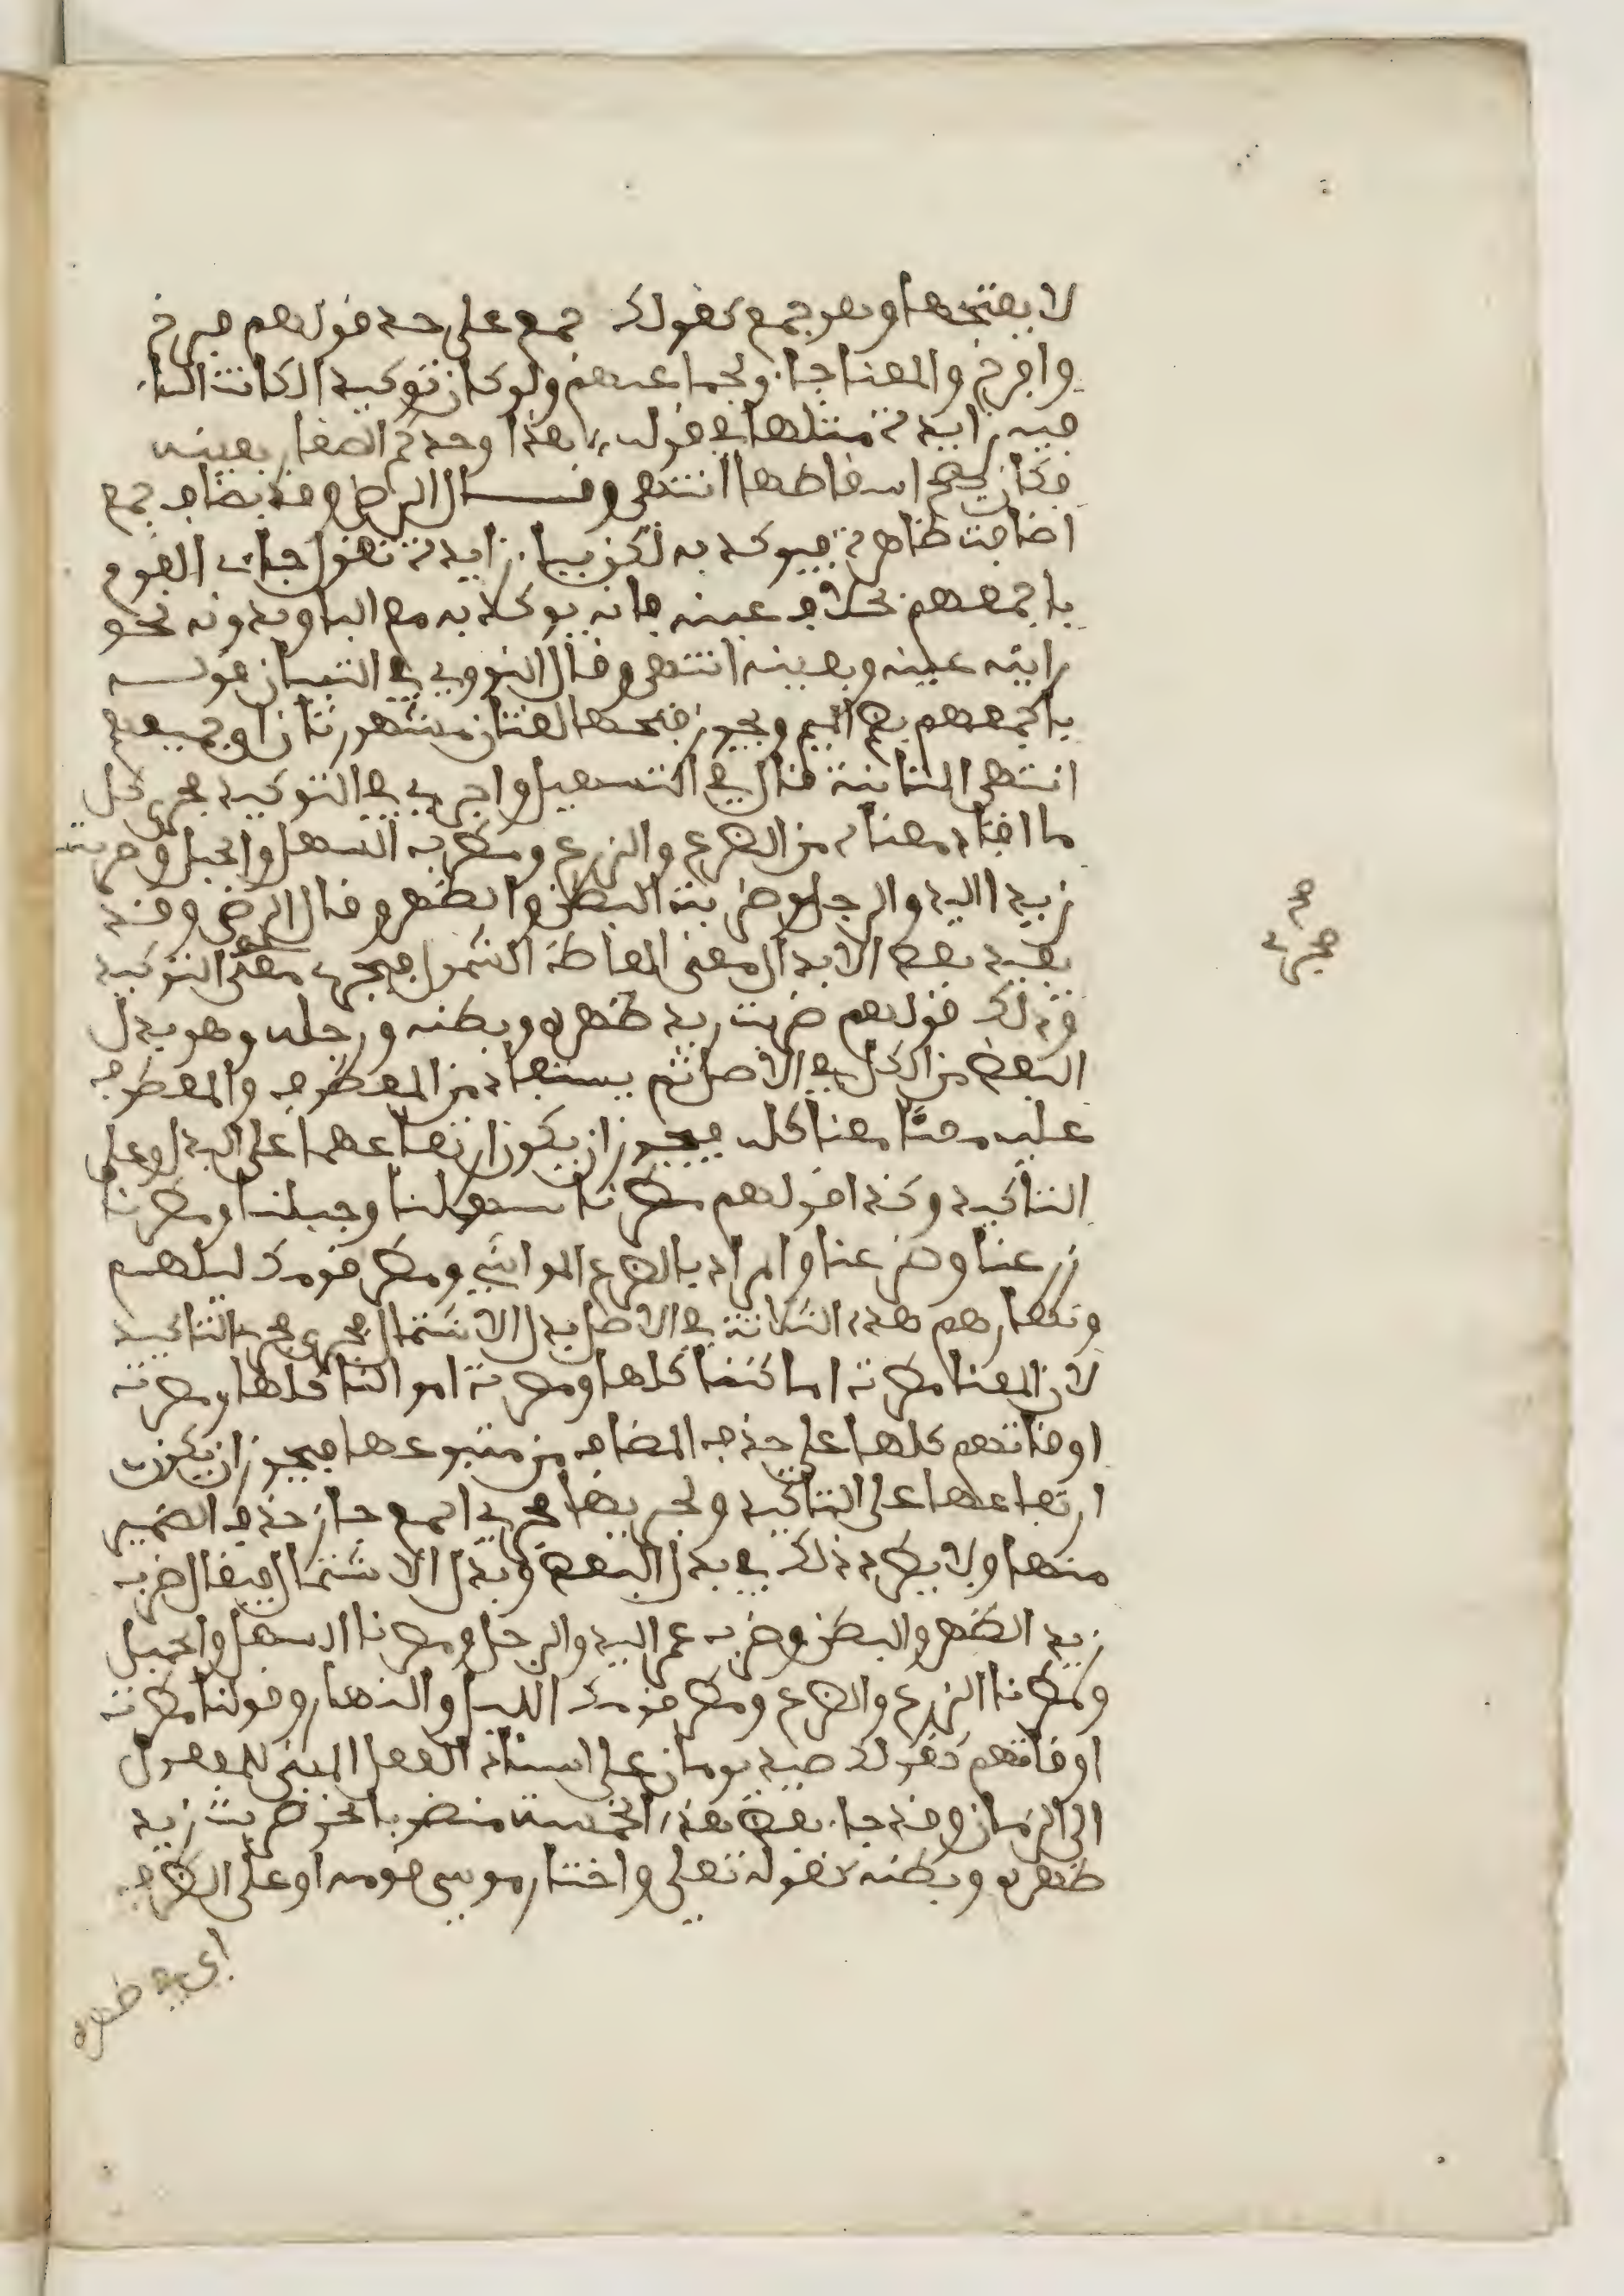 لا بفتحها وهو جمع كقولك جمع على حد قولهم فرخ
وافرخ والمعنا جاء بجماعتهم ولو كان توكيدا لكانت الباء
فيه زايدة مثلها في قوله هذا وجدكم الصغار بعينه
فكان يصح اسقاطها انتهى وقال الرضي وقد يضاف جمع
اضافت ظاهرة فيوكد به لكن بباء زايدة نقول جاءت القوم
باجمعهم بخلاف عينه فانه يوكد به مع الباء وبدونه نحو
رايته عينه وبعينه انتهى وقال النووي في التبيان قوله
باجمعهم بضم الميم ويجوز فتحها لغتان مشهورتان اي جميعهم
انتهى الثامنة قال في التسهيل واجري في التوكيد مجرى كل
ما افاد معناه من الضرع والزرع ومطر به السهل والجبل وضربت
زيدا اليد والرجل وضربته البطن والظهر وقال الرضي وقد
يفيد بعض الابدال معنى الفاظ الشمول فيجري مجرى التوكيد
وذلك قولهم ضربت زيد ظهره وبطنه ورجله وهو بدل
البعض من الكل في الاصل ثم يستفاد من المعطوف والمعطوف
عليه معا معنا كله فيجوز ان يكون ارتفاعهما على البدل وعلى
التاكيد وكذا قولهم مطرنا سهلنا وجبلنا ومطرنا
زرعنا وضرعنا والمراد بالضرع المواشي ومطر قومك ليلهم
ونهارهم هذه الثلاثة في الاصل بدل الاشتمال فجرى مجرى التاكيد
لان المعنا مطرت اماكننا كلها ومطرت اموالنا كلها ومطرت
اوقاتهم كلها على حذف المضاف من متبوعها فيجوز ان يكون
ارتفاعها على التاكيد ولجريها مجرى اجمع جاز حذف الضمير
منها ولا يطرد ذلك في بدل البعض وبدل الاشتمال فيقال ضرب
زيد الظهر والبطن وضرب عمر اليد والرجل ومطرنا السهل والجبل
ومطرنا الزرع والضرع ومطر قومك الليل والنهار وقولنا مطرت
اوقاتهم كقولك صيد يومان على اسناد الفعل المبني للمفعول
الى الزمان وقد جاء بعض هذه الخمسة منصوبا نحو ضربت زيد
ظهره وبطنه كقوله تعلى واختار موسى قومه او على الظرف
اي في ظهره